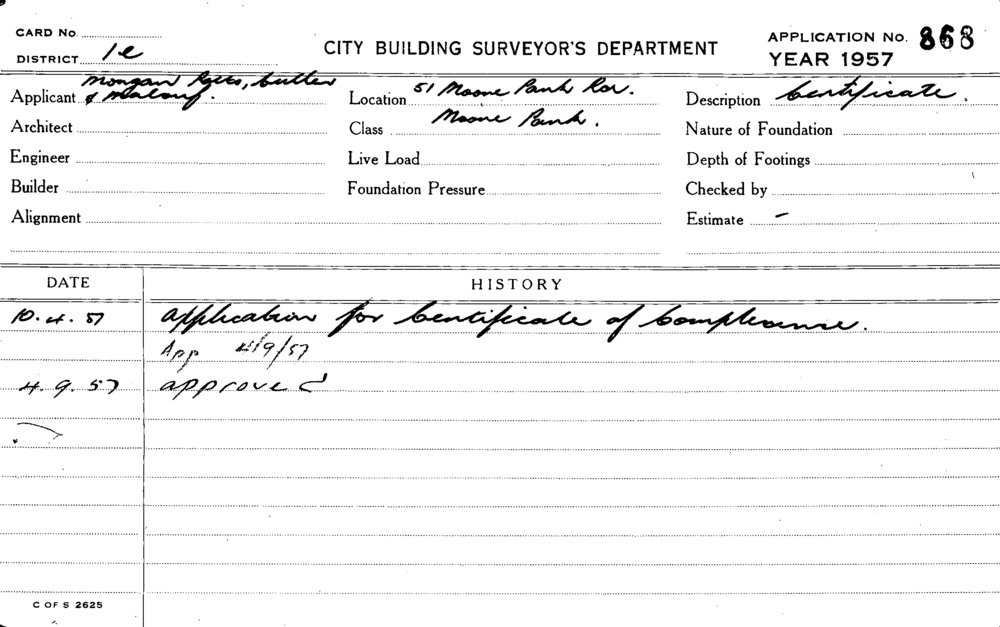 CARD No.
DISTRICT 1e
CITY BUILDING SURVEYOR'S DEPARTMENT
APPLICATION No. 868
YEAR 1957
Applicant Morgan Potts, Cutler
& Malouf.
Location 51 Moore Park Rd.
Description Certificate.
Architect
Class Moore Park.
Nature of Foundation
Engineer
Live Load
Depth of Footings
Builder
Foundation Pressure
Checked by
Alignment
Estimate –
DATE
HISTORY
10.4.57 Application for Certificate of Compliance.
App 4/9/57
4.9.57 approved
C OF S 2625